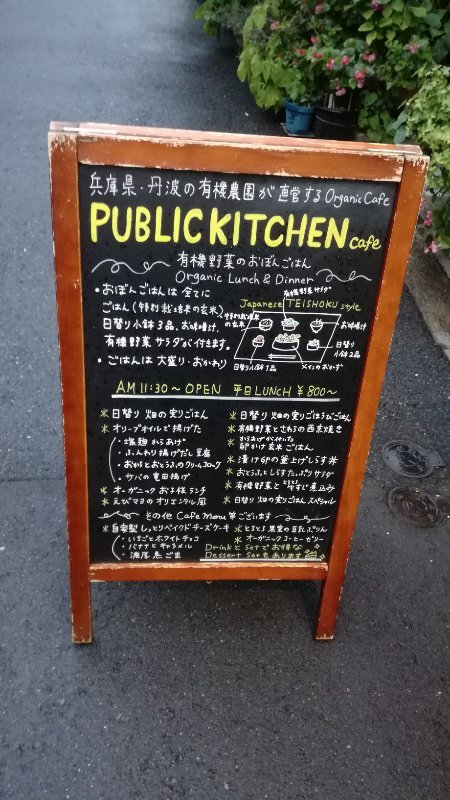 兵庫県・丹波の有機農園が直営するOrganic Cafe
PUBLIC KITCHEN cafe
有機野菜のおぼんごはん
Organic Lunch & Dinner
・おぼんごはんは全てに
ごはん(特別栽培米の玄米)
日替り小鉢3品、お味噌汁、
有機野菜サラダが付きます。
・ごはんは大盛り・おかわり
有機野菜サラダ
Japanese TEISHOKU style
特別栽培米の玄米
お味噌汁
日替り小鉢2品
日替り小鉢1品
メインのおかず
AM11:30〜OPEN 平日LUNCH ¥800〜
＊日替り畑の実りごはん
＊オリーブオイルで揚げた
・塩麹からあげ
・ふんわり揚げだし豆腐
・おからとおとうふのクリームコロッケ
・サバの竜田揚げ
＊オーガニックお子様ランチ
＊えびマヨのオリエンタル風
＊日替り畑の実りごほうびごはん
＊有機野菜とさわらの西京焼き
＊からあげが付いた卵かけ玄米ごはん
＊漬け卵の釜上げしらす丼
＊おとうふとしらすたっぷりサラダ
＊有機野菜と牛すじ煮込み
＊日替り畑の実りごはんスペシャル
その他 Cafe menu 等ございます
＊自家製しっとりベイクドチーズケーキ
・いちごとホワイトチョコ
・バナナとキャラメル
・濃厚黒ごま
＊とろとろ黒蜜の豆乳ぷりん
＊オーガニックコーヒーゼリー
DrinkとSetでお得な
Dessert Setもあります